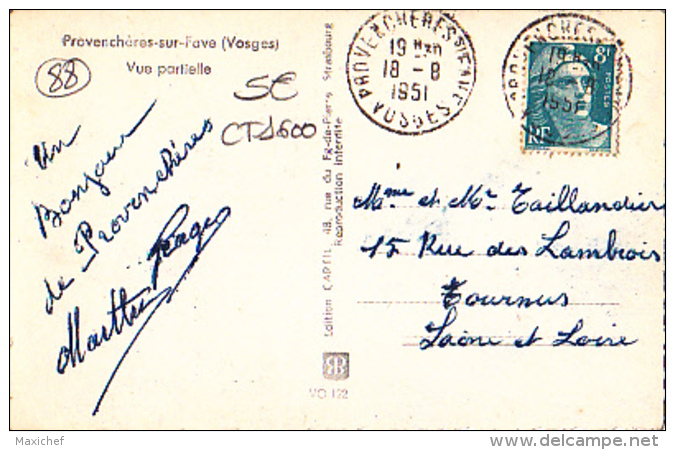 Provenchères-sur-Fave (Vosges)
Vue partielle
88
SC
CTS600
Un
Bonjour
de Provenchères
Edition CARTIL, 48, rue du Fg-de-Pierre, Strasbourg
Reproduction interdite
PROVENCHERES
VOSGES
19 H
18 - 8
1951
8F
POSTES
RF
Mme et Mr Taillandier
15 Rue des Lambrois
Tournus
Saône et Loire
VO 122
Maxichef
www.delcampe.net